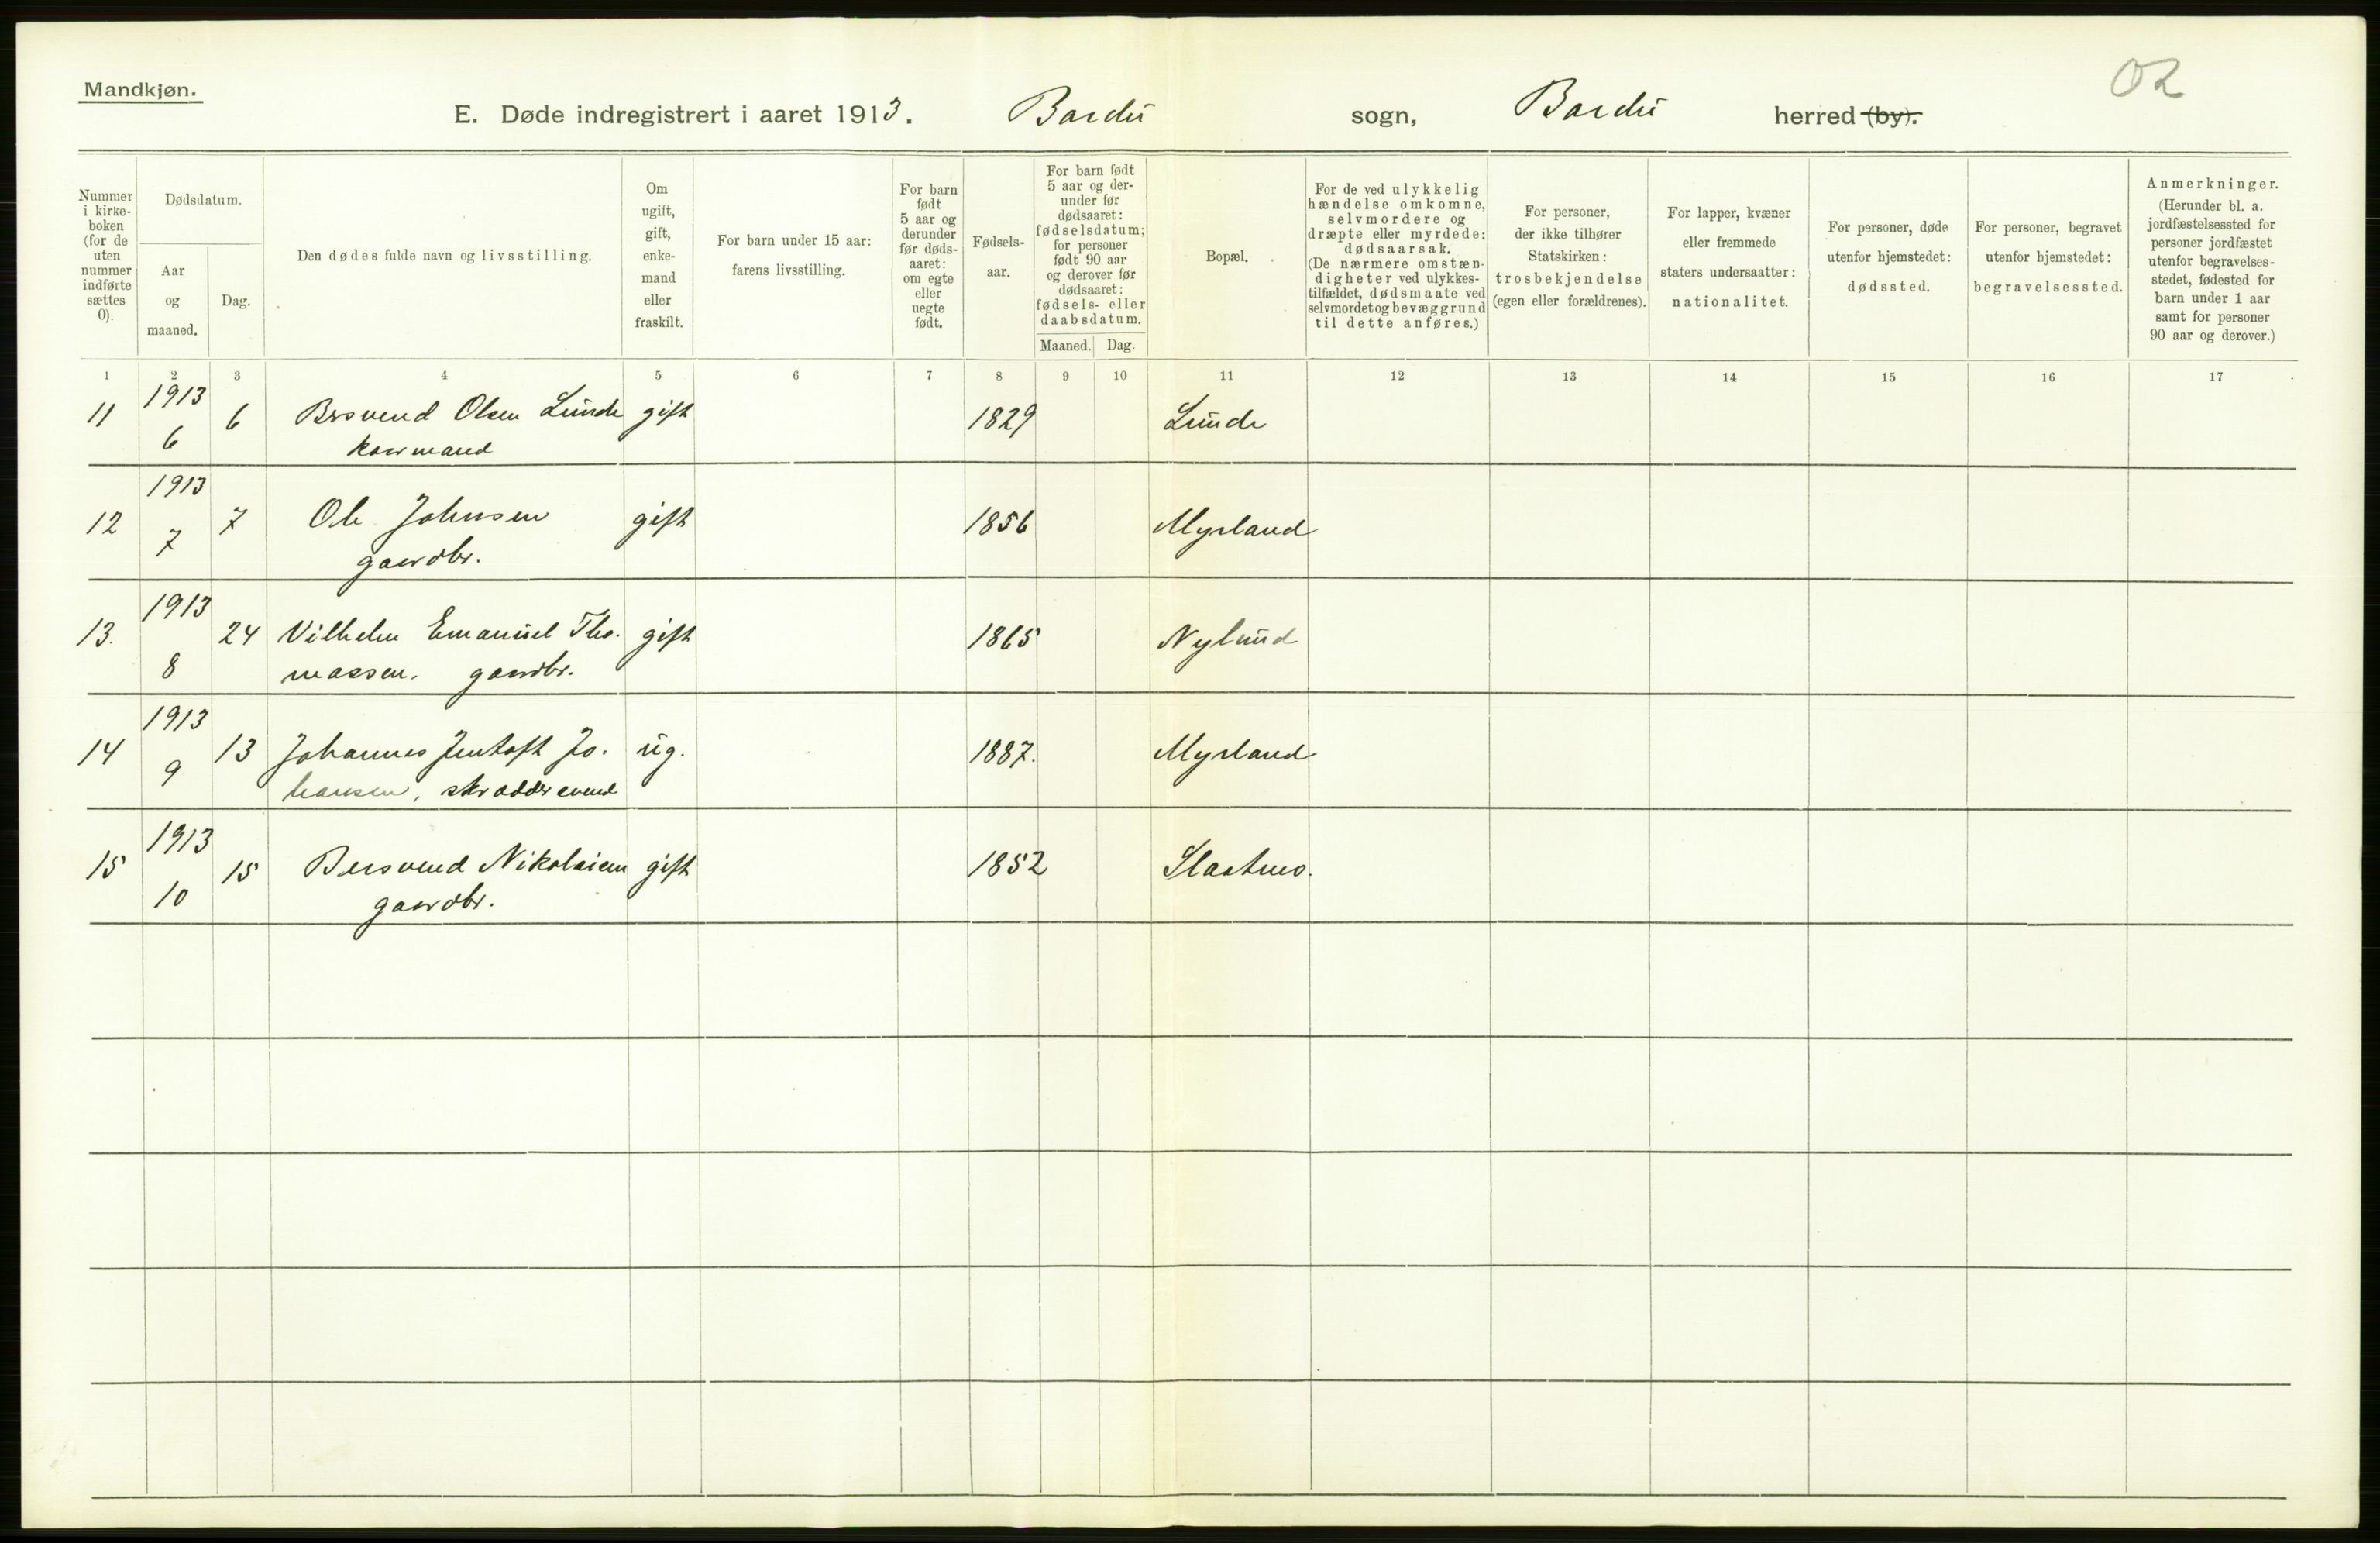 Mandkjøn.
02
E. Døde indregistrert i aaret 1913. Bardu sogn, Bardu herred (by).
Nummer i kirkeboken (for de uten nummer indførte sættes 0).
Dødsdatum.
Aar og maaned.
Dag.
Den dødes fulde navn og livsstilling.
Om ugift, gift, enkemand eller fraskilt.
For barn under 15 aar: farens livsstilling.
For barn født 5 aar og derunder før dødsaaret: om egte eller uegte født.
Fødselsaar.
For barn født 5 aar og derunder før dødsaaret: fødselsdatum; for personer født 90 aar og derover før dødsaaret: fødsels- eller daabsdatum.
Maaned. Dag.
Bopæl.
For de ved ulykkelig hændelse omkomne, selvmordere og dræpte eller myrdede: dødsaarsak. (De nærmere omstændigheter ved ulykkestilfældet, dødsmaate ved selvmordet og bevæggrund til dette anføres.)
For personer, der ikke tilhører Statskirken: trosbekjendelse (egen eller forældrenes).
For lapper, kvæner eller fremmede staters undersaatter: nationalitet.
For personer, døde utenfor hjemstedet: dødssted.
For personer, begravet utenfor hjemstedet: begravelsessted.
Anmerkninger. (Herunder bl. a. jordfæstelsessted for personer jordfæstet utenfor begravelsesstedet, fødested for barn under 1 aar samt for personer 90 aar og derover.)
1 2 3 4 5 6 7 8 9 10 11 12 13 14 15 16 17
11 1913 6 6 Brsvend Olsen Lunde gift 1829 Lunde
kaarmand
12 1913 7 7 Ole Johnsen gift 1856 Myrland
gaardbr.
13. 1913 8 24 Vilhelm Emanuel Tho- gift 1865 Nylund
massen. gaardbr.
14 1913 9 13 Johannes Jentoft Jo- ug. 1887. Myrland
hansen, skræddersvend
15 1913 10 15 Bersvend Nikolaisen gift 1852 Slaatmo.
gaardbr.